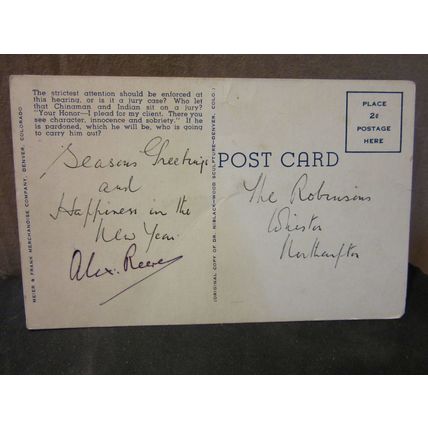 The strictest attention should be enforced at
this hearing, or is it a jury case? Who let
that Chinaman and Indian sit on a jury?
"Your Honor—I plead for my client. There you
see character, innocence and sobriety." If he
is pardoned, which he will be, who is going
to carry him out?
Seasons Greetings
and
Happiness in the
New Year.
Alex. Reeve
MEIER & FRANK MERCHANDISE COMPANY, DENVER, COLORADO
(ORIGINAL COPY OF DR. NIBLACK—WOOD SCULPTURE—DENVER, COLO.)
POST CARD
PLACE
2¢
POSTAGE
HERE
The Robinsons
Northampton